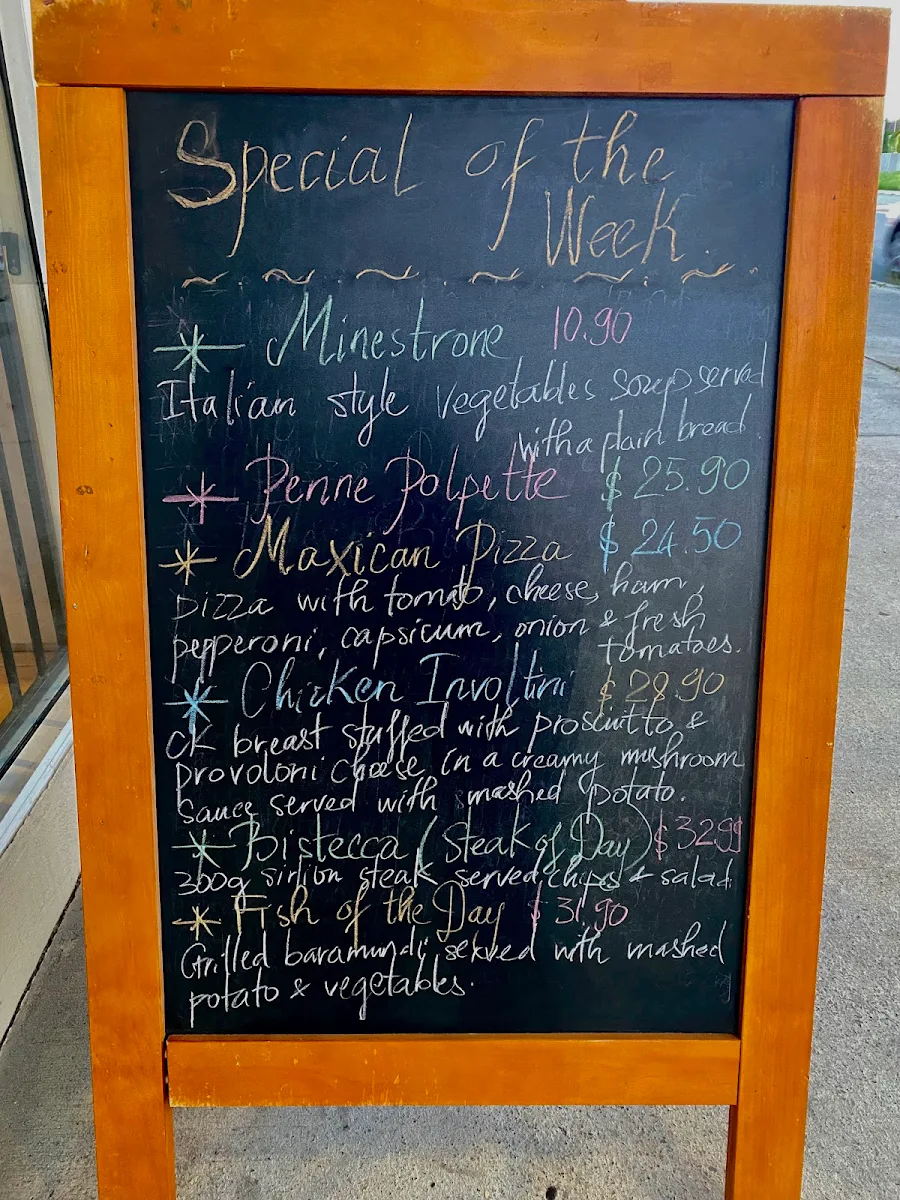 Special of the
Week.
* Minestrone 10.90
Italian style vegetables soup served
with a plain bread.
* Penne Polpette $25.90
* Maxican Pizza $24.50
pizza with tomato, cheese, ham,
pepperoni, capsicum, onion & fresh
tomatoes.
* Chicken Involtini $28.90
CK breast stuffed with prosciutto &
provoloni cheese in a creamy mushroom
sauce served with mashed potato.
* Bistecca (Steak of Day) $32.99
300g sirlion steak served chips & salad.
* Fish of the Day $31.90
Grilled baramundi served with mashed
potato & vegetables.